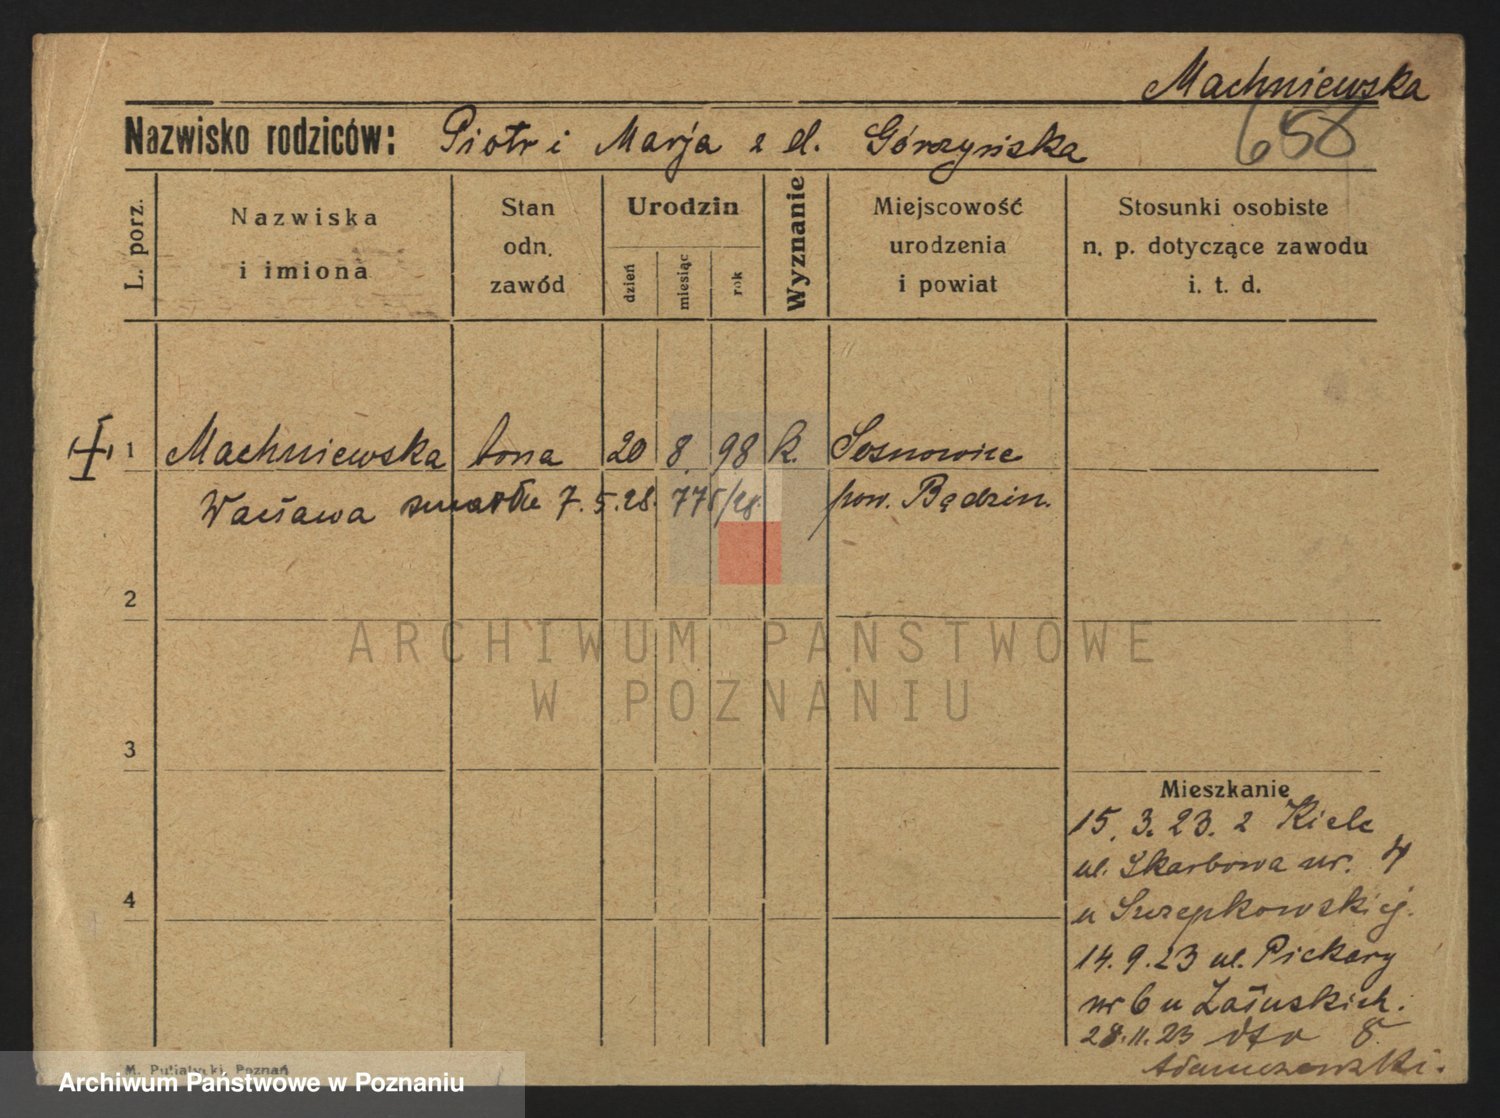 Machniewska
658
Nazwisko rodziców: Piotr i Marja z d. Górzyńska
L. porz.
Nazwiska i imiona
Stan odn. zawód
Urodzin
dzień
miesiąc
rok
Wyznanie
Miejscowość urodzenia i powiat
Stosunki osobiste n. p. dotyczące zawodu i. t. d.
1 Machniewska żona 20 8. 98 k. Sosnowice
Wacława zmarła 7.5.28. 775/28. pow. Będzin.
2
ARCHIWUM PAŃSTWOWE
W POZNANIU
3
Mieszkanie
15. 3. 23. z Kielc
ul. Skarbowa nr. 4
u Szczepkowskiej.
14. 9. 23 ul. Piekary
nr 6 u Załuskich.
28. 11. 23 dto 8
Adamczewski.
4
M. Putiatycki, Poznań
Archiwum Państwowe w Poznaniu